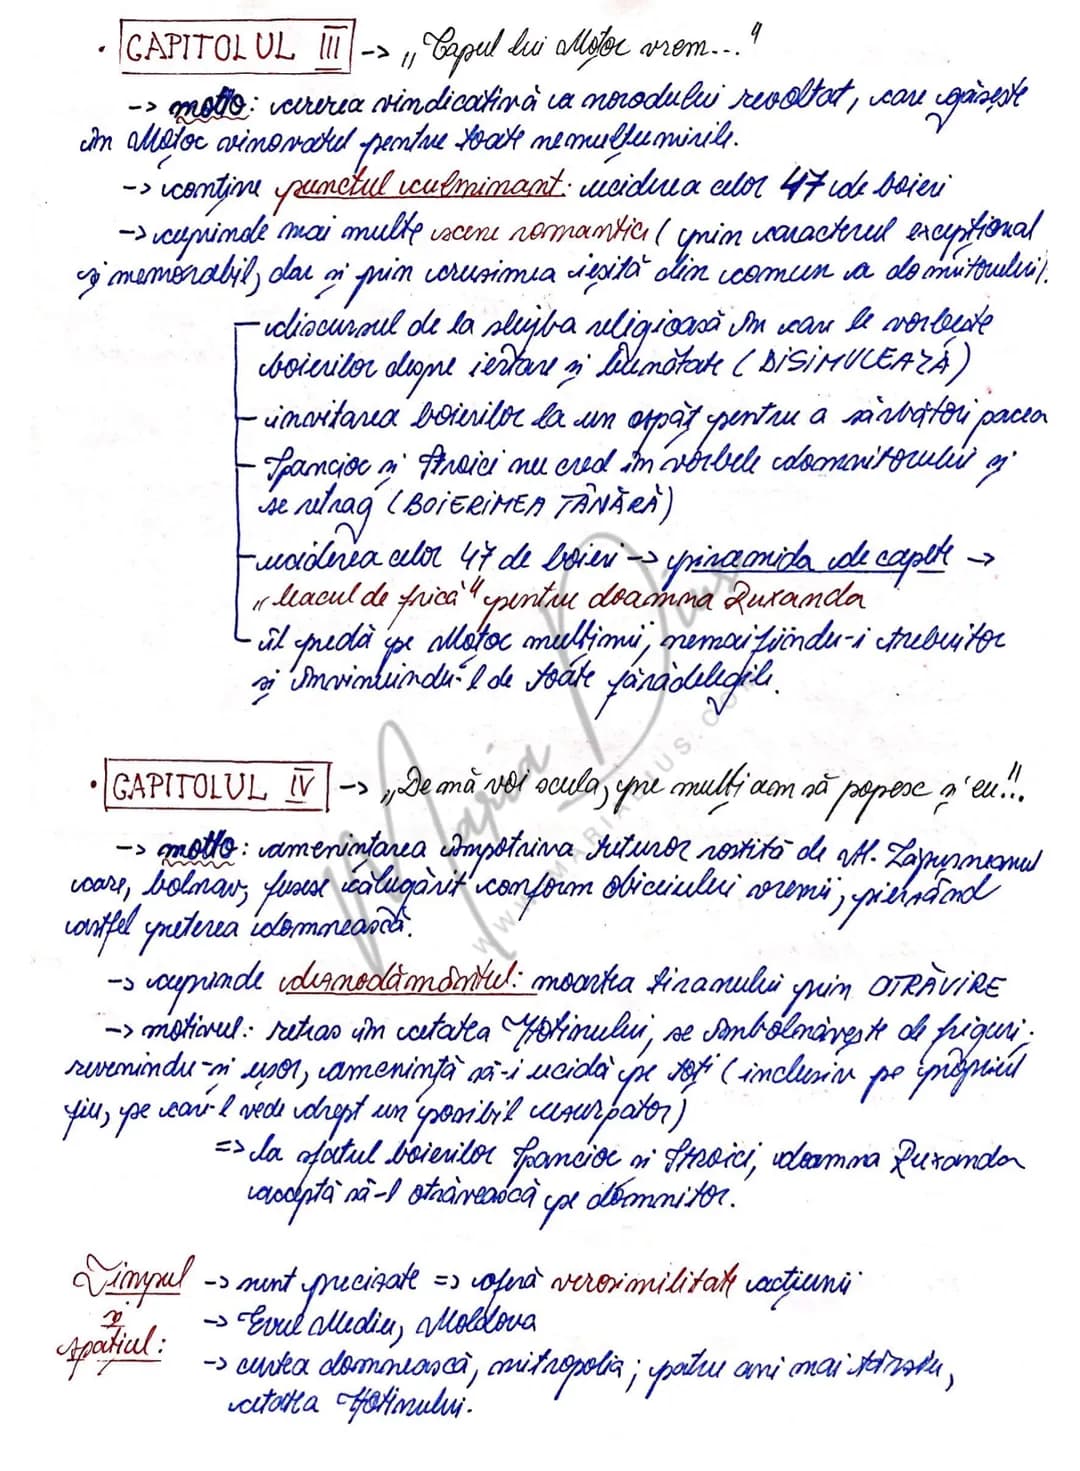 · CAPITOLUL III -> „Capul lui Moțoc vrem..."
-> motto: cererea vindicativă a norodului revoltat, care găsește
în Moțoc vinovatul pentru toate nemulțumirile.
-> conține punctul culminant: uciderea celor 47 de boieri
-> cuprinde mai multe scene romantice (prin caracterul excepțional
și memorabil, dar și prin cruzimea ieșită din comun a domnitorului).
- discursul de la slujba religioasă în care le vorbește
boierilor despre iertare și bunătate (DISIMULEAZĂ)
- invitarea boierilor la un ospăț pentru a sărbători pacea
- Spancioc și Stroici nu cred în vorbele domnitorului și
se retrag (BOIERIMEA TÂNĂRĂ)
- uciderea celor 47 de boieri -> piramida de capete ->
„leacul de frică" pentru doamna Ruxanda
- îl predă pe Moțoc mulțimii, nemaifiindu-i trebuitor
și învinuindu-l de toate fărădelegile.
· CAPITOLUL IV -> „De mă voi scula, pre mulți am să popesc și eu!".
-> motto: amenințarea împotriva tuturor rostită de Al. Lăpușneanul
care, bolnav, fusese călugărit conform obiceiului vremii, pierzând
astfel puterea domnească.
-> cuprinde deznodământul: moartea tiranului prin OTRĂVIRE
-> motivul: retras în cetatea Hotinului, se îmbolnăvește de friguri;
revenindu-și ușor, amenință să-i ucidă pe toți (inclusiv pe propriul
fiu, pe care-l vede drept un posibil uzurpator)
=> la sfatul boierilor Spancioc și Stroici, doamna Ruxanda
acceptă să-l otrăvească pe domnitor.
Timpul -> sunt precizate => oferă verosimilitate acțiunii
și -> Evul Mediu, Moldova
spațiul: -> curtea domnească, mitropolia; patru ani mai târziu,
cetatea Hotinului.
Maria Dius
WWW.MARIADIUS.COM